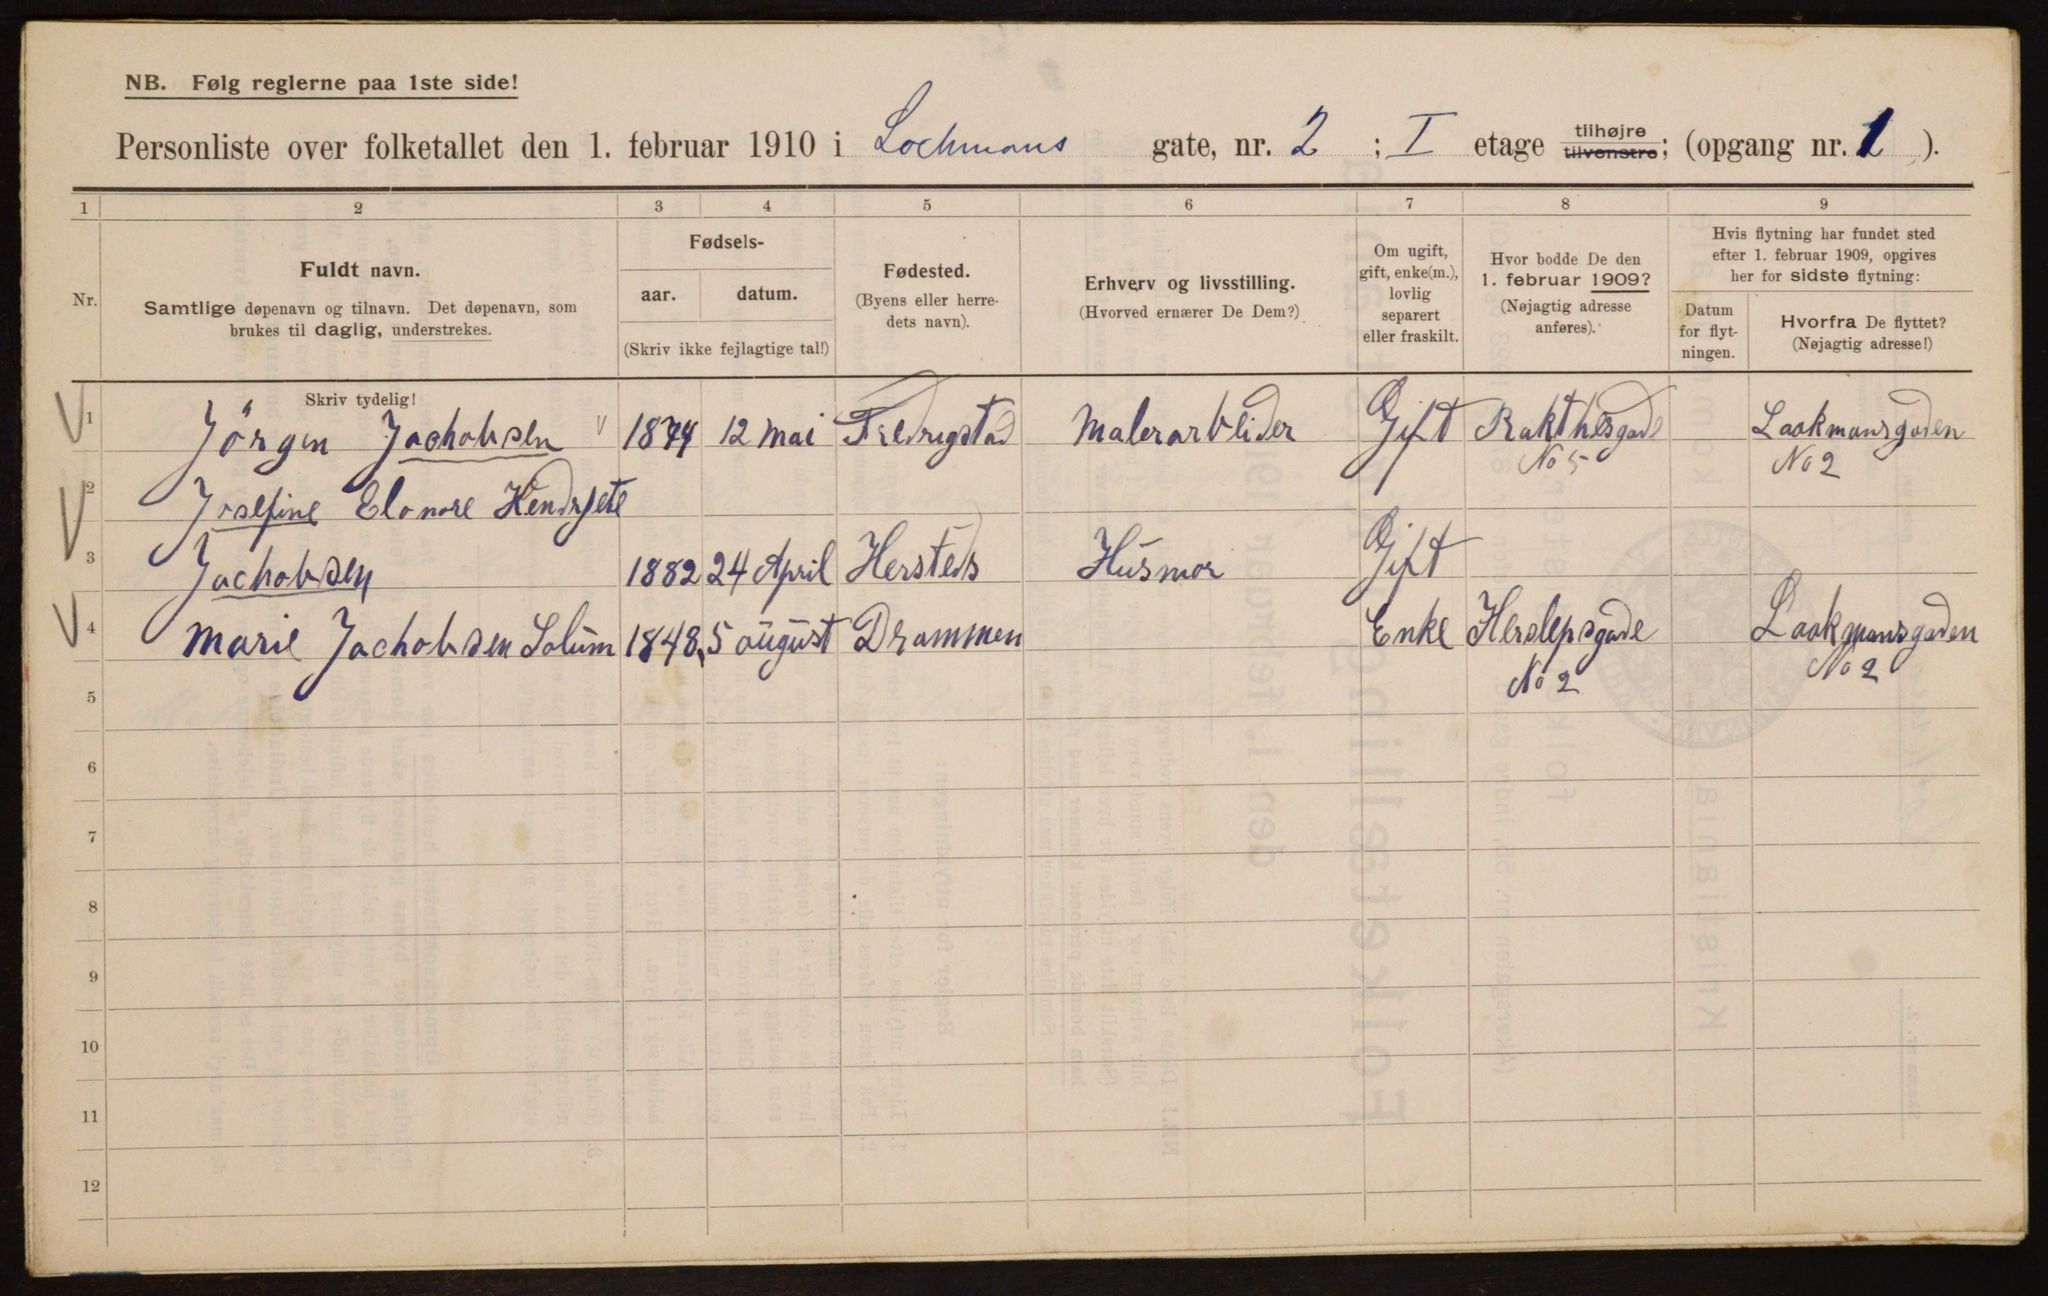 NB. Følg reglerne paa 1ste side!
Personliste over folketallet den 1. februar 1910 i Lochmans gate, nr. 2 ; I etage tilhøjre tilvenstre; (opgang nr. 1 ).
1 2 3 4 5 6 7 8 9
Nr.
Fuldt navn.
Samtlige døpenavn og tilnavn. Det døpenavn, som
brukes til daglig, understrekes.
Fødsels-
aar. datum.
(Skriv ikke fejlagtige tal!)
Fødested.
(Byens eller herre-
dets navn).
Erhverv og livsstilling.
(Hvorved ernærer De Dem?)
Om ugift,
gift, enke(m.),
lovlig
separert
eller fraskilt.
Hvor bodde De den
1. februar 1909?
(Nøjagtig adresse
anføres).
Hvis flytning har fundet sted
efter 1. februar 1909, opgives
her for sidste flytning:
Datum
for flyt-
ningen.
Hvorfra De flyttet?
(Nøjagtig adresse!)
Skriv tydelig!
1 Jörgen Jachobsen 1874 12 mai Fredrigstad Malerarbeider Gift Rakthesgade Laakmansgaden
No 5 No 2
2 Josefine Elonore Hendrjete
3 Jachobsen 1882 24 April Hersteds Husmor Gift
4 Marie Jachobsen Solum 1848 5 august Drammen Enke Herslepsgade Laakmansgaden
No 2 No 2
5
6
7
8
9
10
11
12